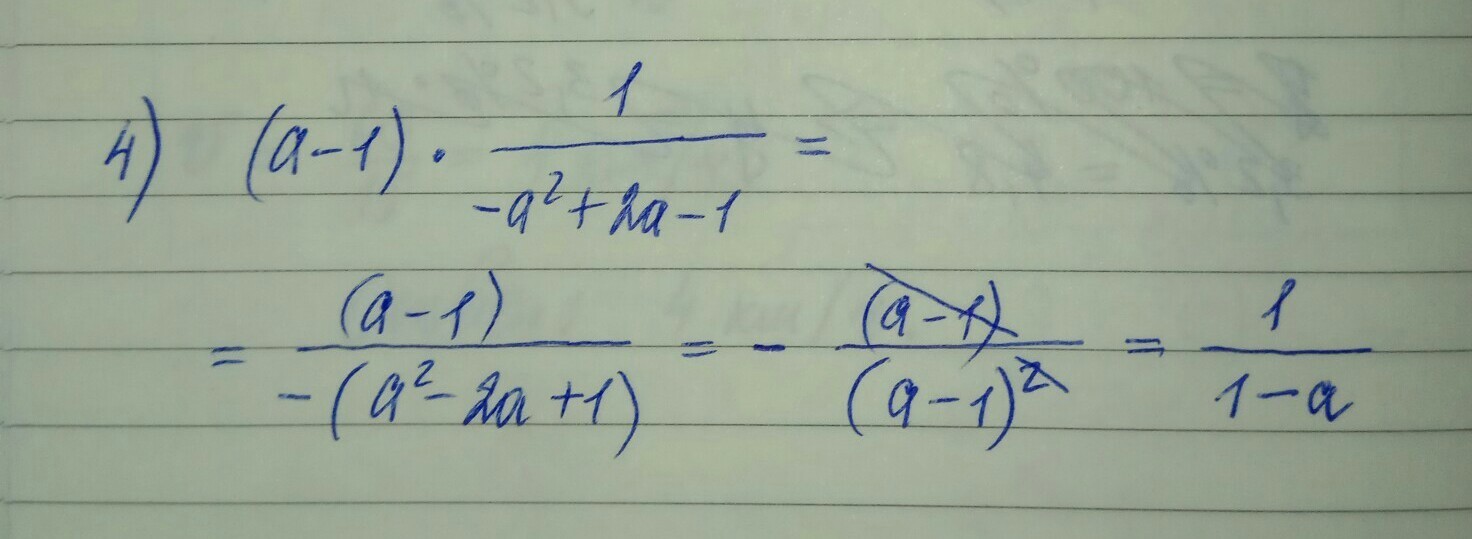 4) (a-1) · 1/(-a²+2a-1) =
= (a-1)/(-(a²-2a+1)) = - (a-1)/(a-1)² = 1/(1-a)